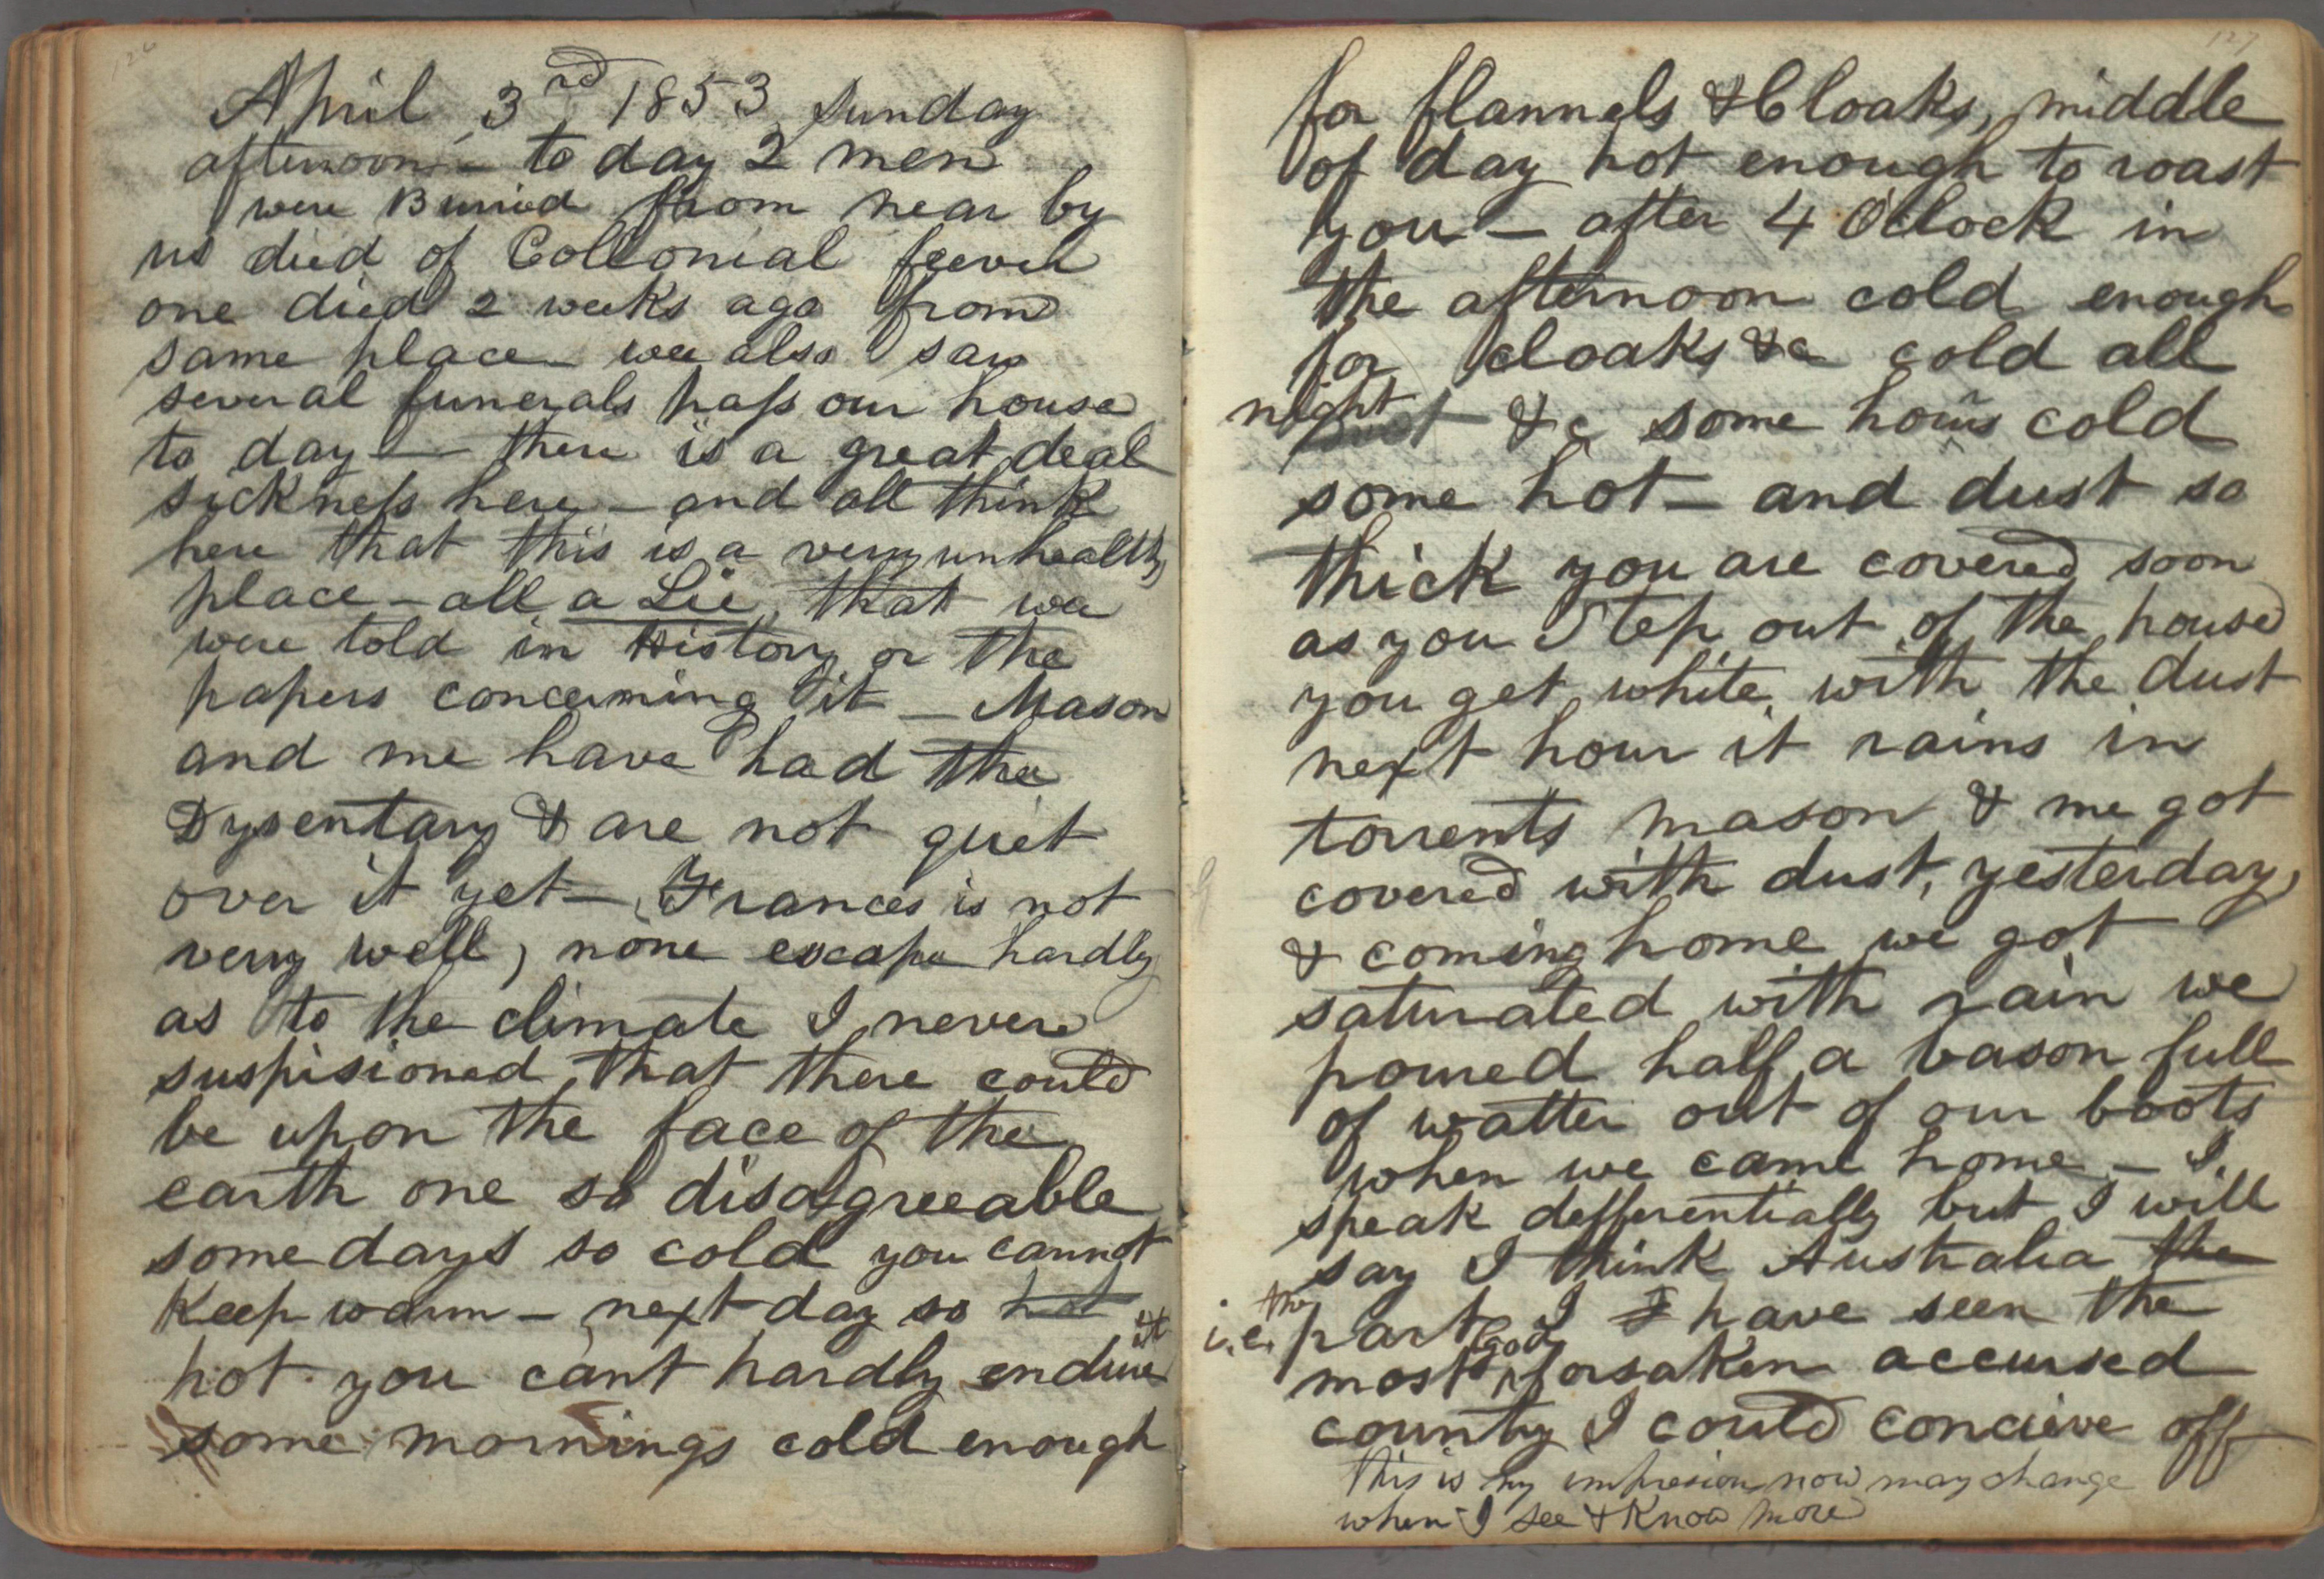 126
April 3rd 1853 Sunday
afternoon - to day 2 men
were Buried from near by
us died of Collonial feever
one died 2 weeks ago from
same place we also saw
several funerals pass our house
to day - there is a great deal
sickness here - and all think
here that this is a very unhealthy
place - all a Lie, that we
were told in History or the
papers concerning it - Mason
and me have had the
Dysentary & are not quiet
over it yet - Frances is not
very well, none escape hardly
as to the climate I never
suspisioned, that there could
be upon the face of the
earth one so disagreeable
some days so cold you cannot
Keep warm - next day so hot
hot you cant hardly endure it
some mornings cold enough
127
for flannels & Cloaks, middle
of day hot enough to roast
you - after 4 Oclock in
the afternoon cold enough
for cloaks &c cold all
night &c some hours cold
some hot - and dust so
thick you are covered soon
as you Step out of the house
you get white with the dust
next hour it rains in
torrents mason & me got
covered with dust, yesterday,
& coming home we got
saturated with rain we
poured half a bason full
of watter out of our boots
when we came home - I
speak defferentially but I will
say I think Australia the
i.e. the part I I have seen the
most God forsaken accursed
country I could concieve off
this is my impresion now may change
when I see & Know more